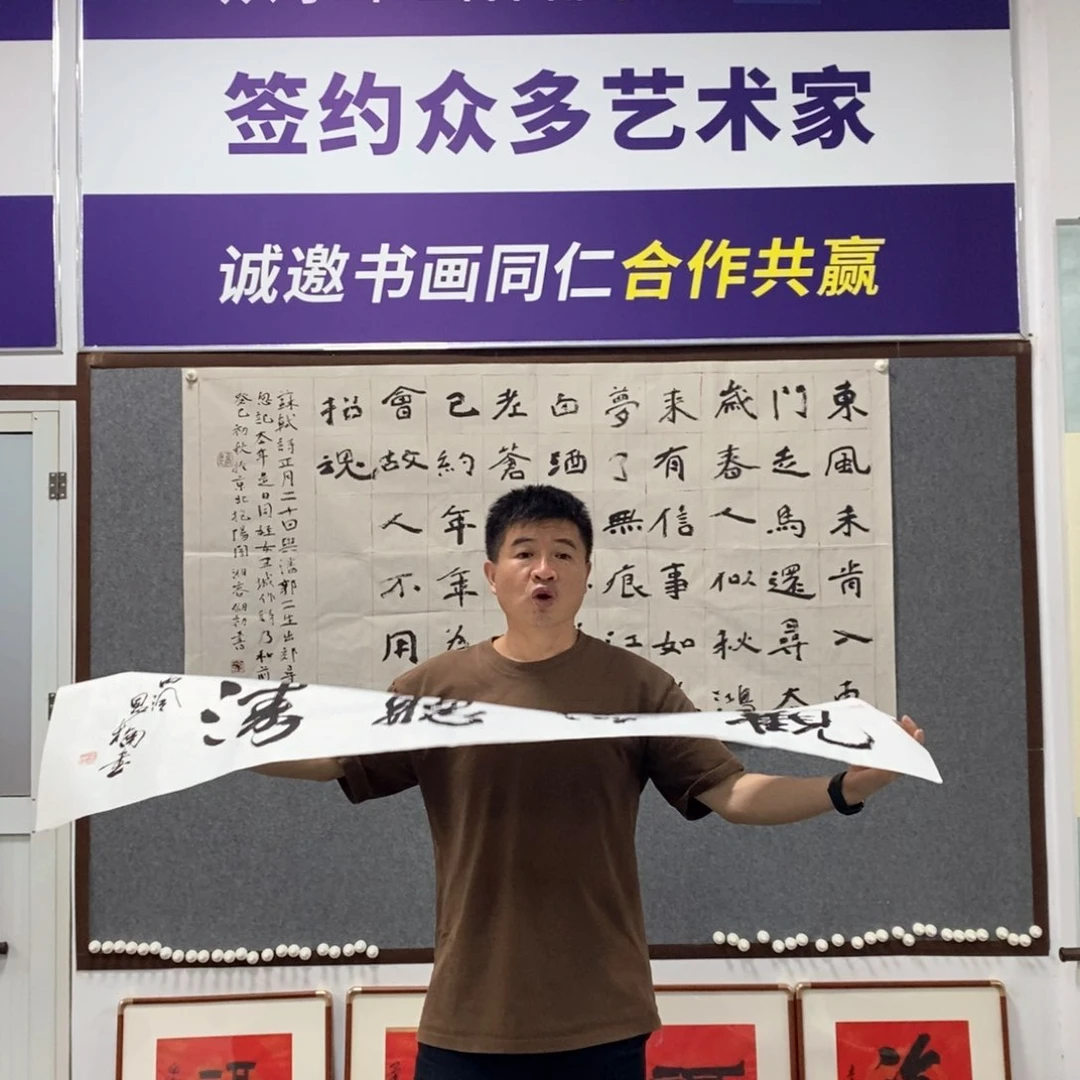 签约众多艺术家
诚邀书画同仁合作共赢
東風未肯入東
門走馬還尋去
歲春人似秋鴻
来有信事如
夢了無痕江
白酒
老蒼
已約年年為
會故人不用
招魂
蘇軾詩正月二十日與潘郭二生出郊尋
忽記去年是日同至女王城作詩乃和前
癸巳初秋於京北
觀 聽濤